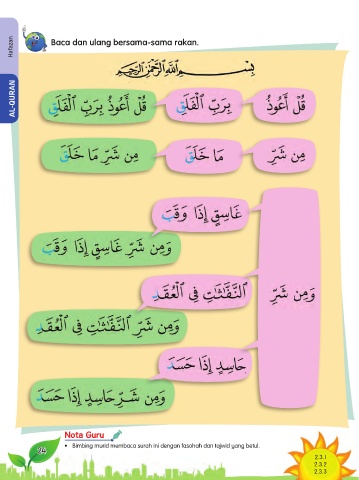 Hafazan
AL-QURAN
Baca dan ulang bersama-sama rakan.
بِسْمِ اللَّهِ الرَّحْمَٰنِ الرَّحِيمِ
قُلْ أَعُوذُ بِرَبِّ ٱلْفَلَقِ قُلْ أَعُوذُ بِرَبِّ ٱلْفَلَقِ
مِن شَرِّ مَا خَلَقَ مِن شَرِّ مَا خَلَقَ
غَاسِقٍ إِذَا وَقَبَ
وَمِن شَرِّ غَاسِقٍ إِذَا وَقَبَ
وَمِن شَرِّ
ٱلنَّفَّـٰثَـٰتِ فِى ٱلْعُقَدِ
وَمِن شَرِّ ٱلنَّفَّـٰثَـٰتِ فِى ٱلْعُقَدِ
حَاسِدٍ إِذَا حَسَدَ
وَمِن شَرِّ حَاسِدٍ إِذَا حَسَدَ
Nota Guru
• Bimbing murid membaca surah ini dengan fasohah dan tajwid yang betul.
24
2.3.1
2.3.2
2.3.3